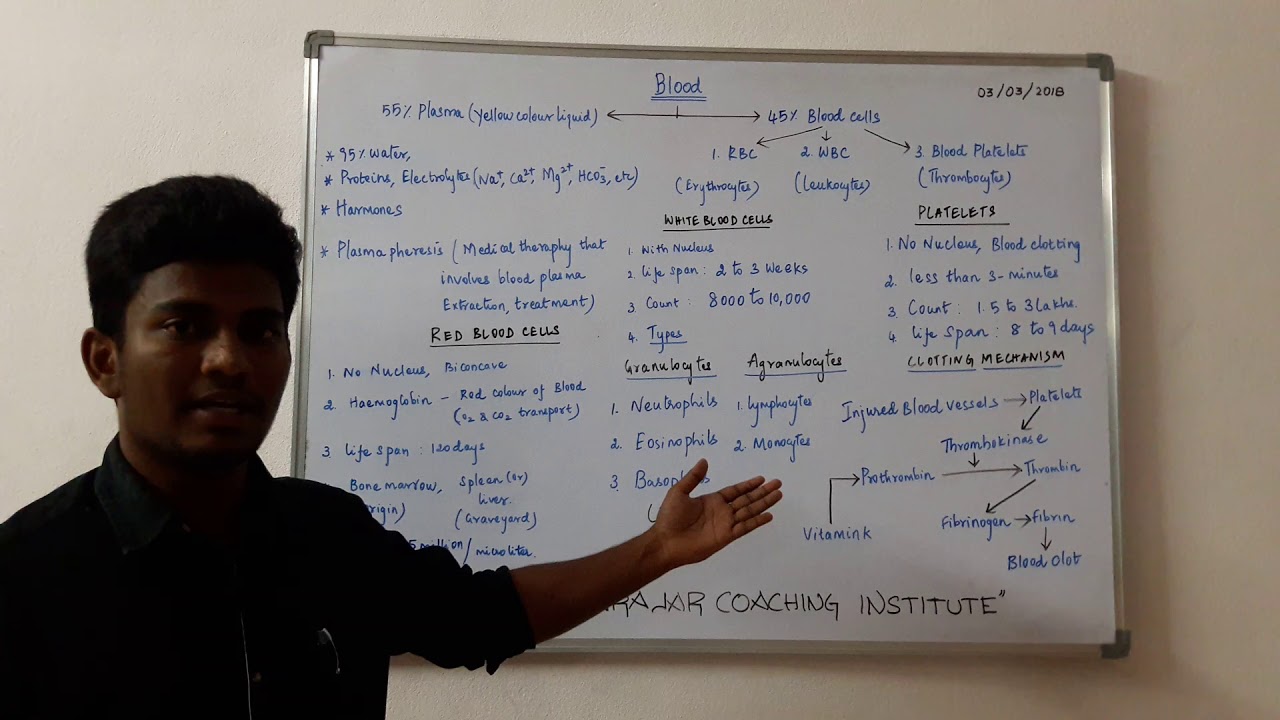 Blood
03/03/2018
55% Plasma (Yellow colour liquid)
45% Blood cells
* 95% water,
* Proteins, Electrolytes (Na+, Ca2+, Mg2+, HCO3-, etc)
* Harmones
* Plasma pheresis (Medical theraphy that
involves blood plasma
Extraction, treatment)
1. RBC
(Erythrocytes)
2. WBC
(Leukocytes)
3. Blood Platelets
(Thrombocytes)
RED BLOOD CELLS
1. No Nucleus, Biconcave
2. Haemoglobin - Red colour of Blood
(O2 & CO2 transport)
3. life span : 120 days
Bone marrow, Spleen (or)
liver.
(Graveyard)
million/microliter.
WHITE BLOOD CELLS
1. With Nucleus
2. life span : 2 to 3 weeks
3. Count : 8000 to 10,000
4. Types
Granulocytes
1. Neutrophils
2. Eosinophils
3.
Agranulocytes
1. lymphocytes
2. Monocytes
PLATELETS
1. No Nucleus, Blood clotting
2. less than 3-minutes
3. Count : 1.5 to 3 lakhs.
4. life span : 8 to 9 days
CLOTTING MECHANISM
Injured Blood vessels → Platelets
Thrombokinase
Prothrombin → Thrombin
Vitamink
Fibrinogen → Fibrin
Blood Olot
COACHING INSTITUTE"